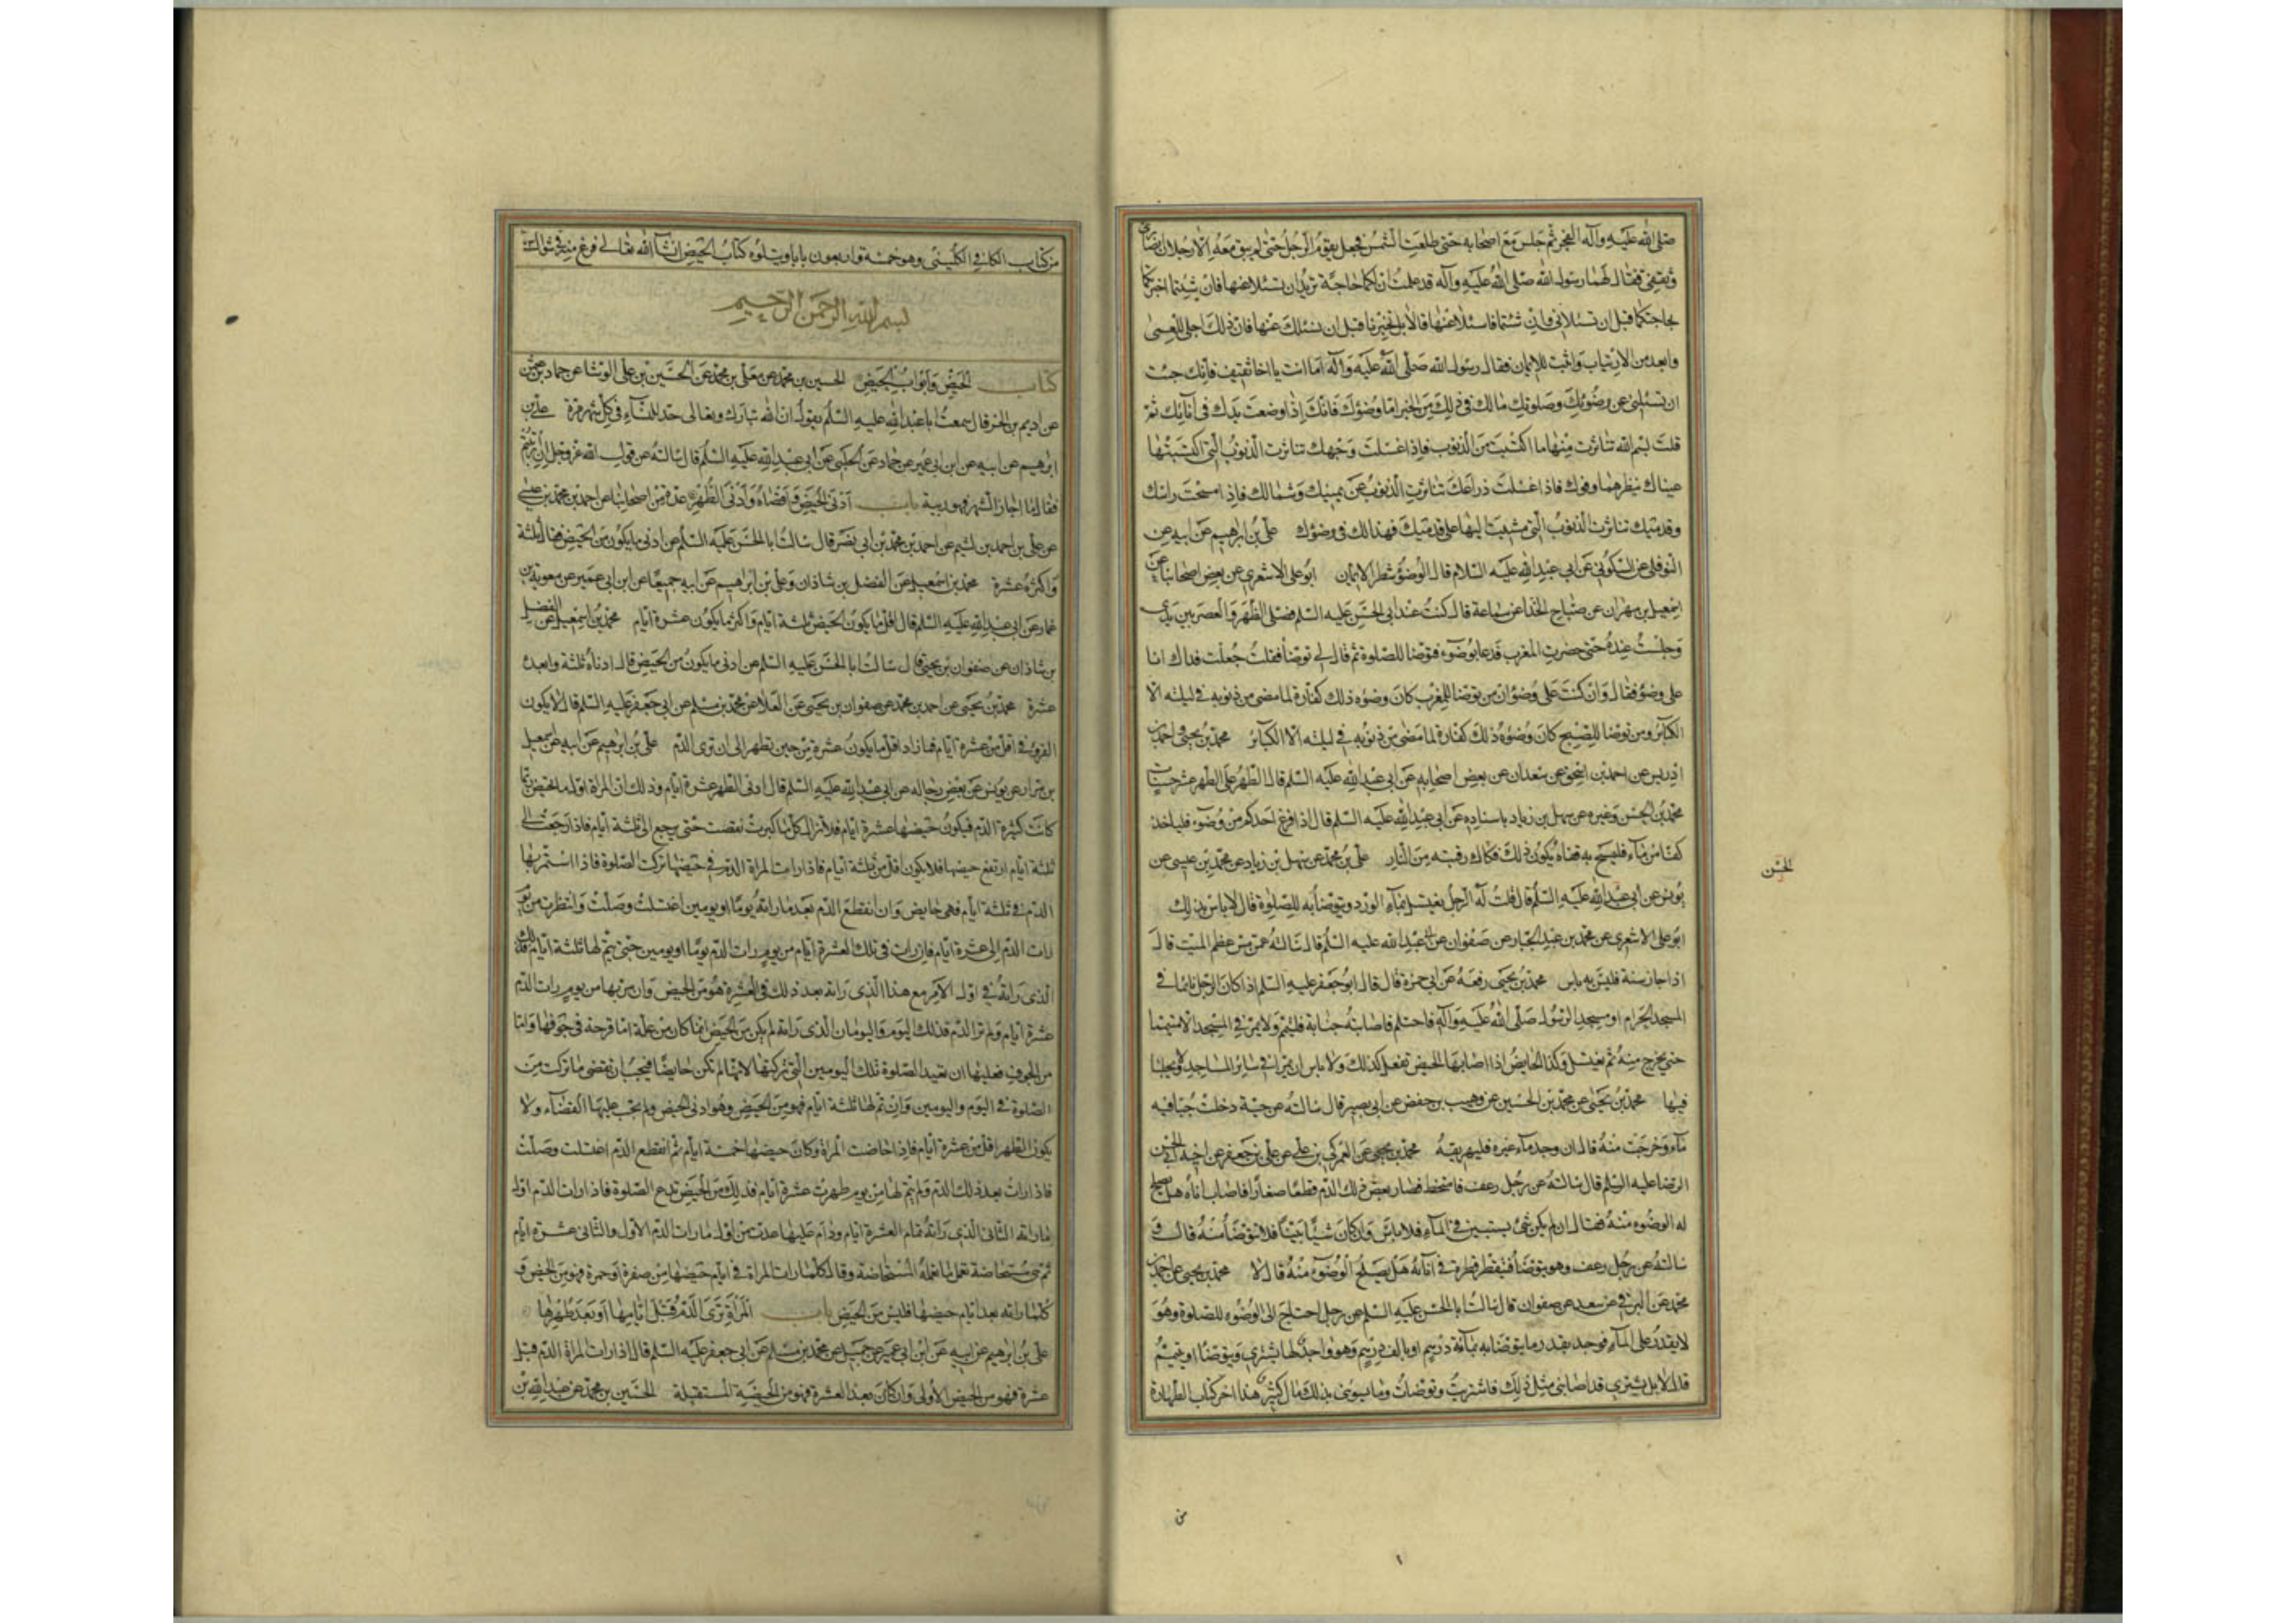 صلى الله عليه وآله الفجر ثم جلس مع اصحابه حتى طلعت الشمس فجعل يقوم الرجل حتى لم يبق معه الا رجلان انصاري
وثقفي فقال لهما رسول الله صلى الله عليه وآله قد علمت ان لكما حاجة تريدان تسئلا عنها فان شئتما اخبرتكما
بحاجتكما قبل ان تسئلاني وان شئتما فاسئلا عنها قالا بل تخبرنا قبل ان نسئلك عنها فان ذلك اجلى للعمى
وابعد من الارتياب واثبت للايمان فقال رسول الله صلى الله عليه وآله اما انت يا اخا ثقيف فانك جئت
ان تسئلني عن وضوئك وصلوتك مالك في ذلك من الخير اما وضوؤك فانك اذا وضعت يدك في انائك ثم
قلت بسم الله تناثرت منها ما اكتسبت من الذنوب فاذا غسلت وجهك تناثرت الذنوب التي اكتسبتها
عيناك بنظرهما وفوك فاذا غسلت ذراعك تناثرت الذنوب عن يمينك وشمالك فاذا مسحت راسك
وقدميك تناثرت الذنوب التي مشيت اليها على قدميك فهذا لك في وضوئك علي بن ابراهيم عن ابيه عن
النوفلي عن السكوني عن ابي عبد الله عليه السلام قال الوضوء شطر الايمان ابو علي الاشعري عن بعض اصحابنا عن
اسمعيل بن مهران عن صباح الحذا عن سماعة قال كنت عند ابي الحسن عليه السلم فصلى الظهر والعصر بين يدي
وجلست عنده حتى حضرت المغرب فدعا بوضوء فتوضا للصلوة ثم قال لي توضأ فقلت جعلت فداك انا
على وضوء فقال وان كنت على وضوء ان من توضا للمغرب كان وضوءه ذلك كفارة لما مضى من ذنوبه في ليلته الا
الكبائر ومن توضا للصبح كان وضوءه ذلك كفارة لما مضى من ذنوبه في ليلته الا الكبائر محمد بن يحيى واحمد بن
ادريس عن احمد بن اسحق عن سعدان عن بعض اصحابه عن ابي عبد الله عليه السلم قال الطهر على الطهر عشر حسنات
محمد بن الحسن وغيره عن سهل بن زياد باسناده عن ابي عبد الله عليه السلم قال اذا فرغ احدكم من وضوء فلياخذ
كفا من ماء فليمسح به قفاه يكون ذلك فكاك رقبته من النار علي بن محمد عن سهل بن زياد عن محمد بن عيسى عن
يونس عن ابي عبد الله عليه السلم قال قلت له الرجل يغتسل بماء الورد ويتوضأ به للصلوة قال لا باس بذلك
ابو علي الاشعري عن محمد بن عبد الجبار عن صفوان عن عبد الله عليه السلم قال سالته عمن مس عظم الميت قال
اذا جاز سنة فليس به باس محمد بن يحيى رفعه عن ابي حمزة قال قال ابو جعفر عليه السلم اذا كان الرجل نائما في
المسجد الحرام او مسجد الرسول صلى الله عليه وآله فاحتلم فاصابته جنابة فليتيمم ولا يمر في المسجد الا متيمما
حتى يخرج منه ثم يغتسل وكذا الحايض اذا اصابها الحيض تفعل كذلك ولا باس ان يمرا في سائر المساجد ولا يجلسا
فيها محمد بن يحيى عن محمد بن الحسين عن وهيب بن حفص عن ابي بصير قال سالته عن حية دخلت حبا فيه
ماء وخرجت منه قال ان وجد ماء غيره فليهريقه محمد بن يحيى عن العمركي بن علي عن علي بن جعفر عن اخيه ابي الحسن
الرضا عليه السلم قال سالته عن رجل رعف فامتخط فصار بعض ذلك الدم قطعا صغارا فاصاب اناءه هل يصلح
له الوضوء منه فقال ان لم يكن شئ يستبين في الماء فلا باس وان كان شيئا بينا فلا يتوضأ منه قال و
سالته عن رجل رعف وهو يتوضأ فيقطر قطرة في انائه هل يصلح الوضوء منه قال لا محمد بن يحيى عن احمد بن
محمد عن البرقي عن سعد عن صفوان قال سالت ابا الحسن عليه السلم عن رجل احتاج الى الوضوء للصلوة وهو
لا يقدر على الماء فوجد بقدر ما يتوضا به بمائة درهم او بالف درهم وهو واجد لها يشتري ويتوضأ او يتيمم
قال لا بل يشتري قد اصابني مثل ذلك فاشتريت وتوضات وما يسوءني بذلك مال كثير هذا اخر كتاب الطهارة
الحسن
من
من كتاب الكافي الكليني وهو خمسة واربعون بابا ويتلوه كتاب الحيض انشاء الله تعالى فرغ منه في شوال
بسم الله الرحمن الرحيم
كتاب الحيض وابواب الحيض الحسين بن محمد عن معلى بن محمد عن الحسين بن علي الوشا عن حماد بن عثمن
عن اديم بن الحر قال سمعت ابا عبد الله عليه السلم يقول ان الله تبارك وتعالى حد للنساء في كل شهر مرة علي بن
ابراهيم عن ابيه عن ابن ابي عمير عن حماد عن الحلبي عن ابي عبد الله عليه السلم قال سالته عن قول الله عز وجل ان ارتبتم
فقال ما جاز الشهر فهو ريبة باب ادنى الحيض واقصاه وادنى الطهر عدة من اصحابنا عن احمد بن محمد بن عيسى
عن علي بن احمد بن اشيم عن احمد بن محمد بن ابي نصر قال سالت ابا الحسن عليه السلم عن ادنى ما يكون من الحيض فقال ثلثة
واكثره عشرة محمد بن اسمعيل عن الفضل بن شاذان وعلي بن ابراهيم عن ابيه جميعا عن ابن ابي عمير عن معوية بن
عمار عن ابي عبد الله عليه السلم قال اقل ما يكون الحيض ثلثة ايام واكثر ما يكون عشرة ايام محمد بن اسمعيل عن الفضل
بن شاذان عن صفوان بن يحيى قال سالت ابا الحسن عليه السلم عن ادنى ما يكون من الحيض قال ادناه ثلثة وابعده
عشرة محمد بن يحيى عن احمد بن محمد عن صفوان بن يحيى عن العلا عن محمد بن مسلم عن ابي جعفر عليه السلم قال لا يكون
القرء في اقل من عشرة ايام فما زاد اقل ما يكون عشرة من حين تطهر الى ان ترى الدم علي بن ابراهيم عن ابيه عن اسمعيل
بن مرار عن يونس عن بعض رجاله عن ابي عبد الله عليه السلم قال ادنى الطهر عشرة ايام وذلك ان المراة اول ما تحيض ربما
كانت كثيرة الدم فيكون حيضها عشرة ايام فلا تزال كلما كبرت نقصت حتى يرجع الى ثلثة ايام فاذا رجعت الى
ثلثة ايام ارتفع حيضها فلا يكون اقل من ثلثة ايام فاذا رات المراة الدم في حيضها تركت الصلوة فاذا استمر بها
الدم في ثلثة ايام فهي حايض وان انقطع الدم بعد ما راته يوما او يومين اغتسلت وصلت وانتظرت من يوم
رات الدم الى عشرة ايام فان رات في تلك العشرة ايام من يوم رات الدم يوما او يومين حتى يتم لها ثلثة ايام فذلك
الذي راته في اول الامر مع هذا الذي راته بعد ذلك في العشرة هو من الحيض وان مر بها من يوم رات الدم
عشرة ايام ولم تر الدم فذلك اليوم واليومان الذي راته لم يكن من الحيض انما كان من علة اما قرحة في جوفها واما
من الجوف فعليها ان تعيد الصلوة تلك اليومين التي تركتها لانها لم تكن حايضا فيجب ان تقضي ما تركت من
الصلوة في اليوم واليومين وان تم لها ثلثة ايام فهو من الحيض وهو ادنى الحيض ولم يجب عليها القضاء ولا
يكون الطهر اقل من عشرة ايام فاذا حاضت المراة وكان حيضها خمسة ايام ثم انقطع الدم اغتسلت وصلت
فاذا رات بعد ذلك الدم ولم يتم لها من يوم طهرت عشرة ايام فذلك من الحيض تدع الصلوة فاذا رات الدم اول
ما راته الثاني الذي راته تمام العشرة ايام ودام عليها عدت من اول ما رات الدم الاول والثاني عشرة ايام
ثم هي مستحاضة تعمل ما تعمله المستحاضة وقال كلما رات المراة في ايام حيضها من صفرة او حمرة فهو من الحيض و
كلما راته بعد ايام حيضها فليس من الحيض باب المراة ترى الدم قبل ايامها او بعد طهرها
علي بن ابراهيم عن ابيه عن ابن ابي عمير عن جميل عن محمد بن مسلم عن ابي جعفر عليه السلم قال اذا رات المراة الدم قبل
عشرة فهو من الحيض الاولى وان كان بعد العشرة فهو من الحيضة المستقبلة الحسين بن محمد عن عبد الله بن